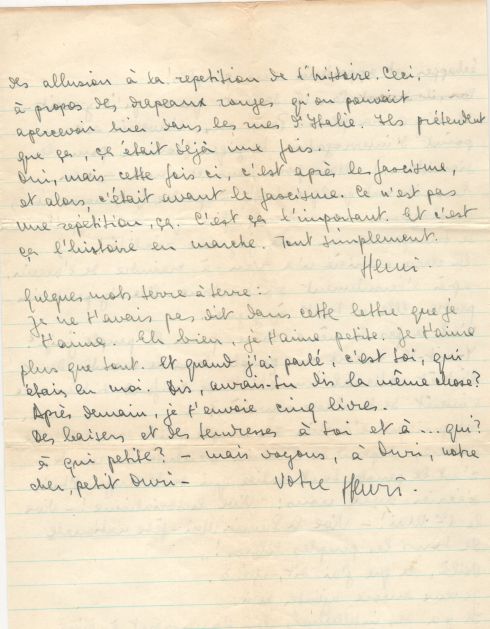 des allusion à la repetition de l'histoire. Ceci,
à propos des drapeaux rouges qu'on pouvait
apercevoir hier dans les rues d'Italie. Ils prétendent
que ça, ça était déjà une fois.
Oui, mais cette fois ci, c'est après le fascisme,
et alors c'était avant le fascisme. Ce n'est pas
une repétition, ça. C'est ça l'important. Et c'est
ça l'histoire en marche. Tout simplement.
Henri.
Quelques mots terre à terre :
Je ne t'avais pas dit dans cette lettre que je
t'aime. Eh bien, je t'aime petite. Je t'aime
plus que tout. Et quand j'ai parlé, c'est toi, qui
étais en moi. Dis, aurais-tu dis la même chose?
Après demain, je t'envoie cinq livres.
Des baisers et des tendresses à toi et à ... qui?
à qui petite? - mais voyons, à Duri, notre
cher, petit Duri -
Votre Henri.